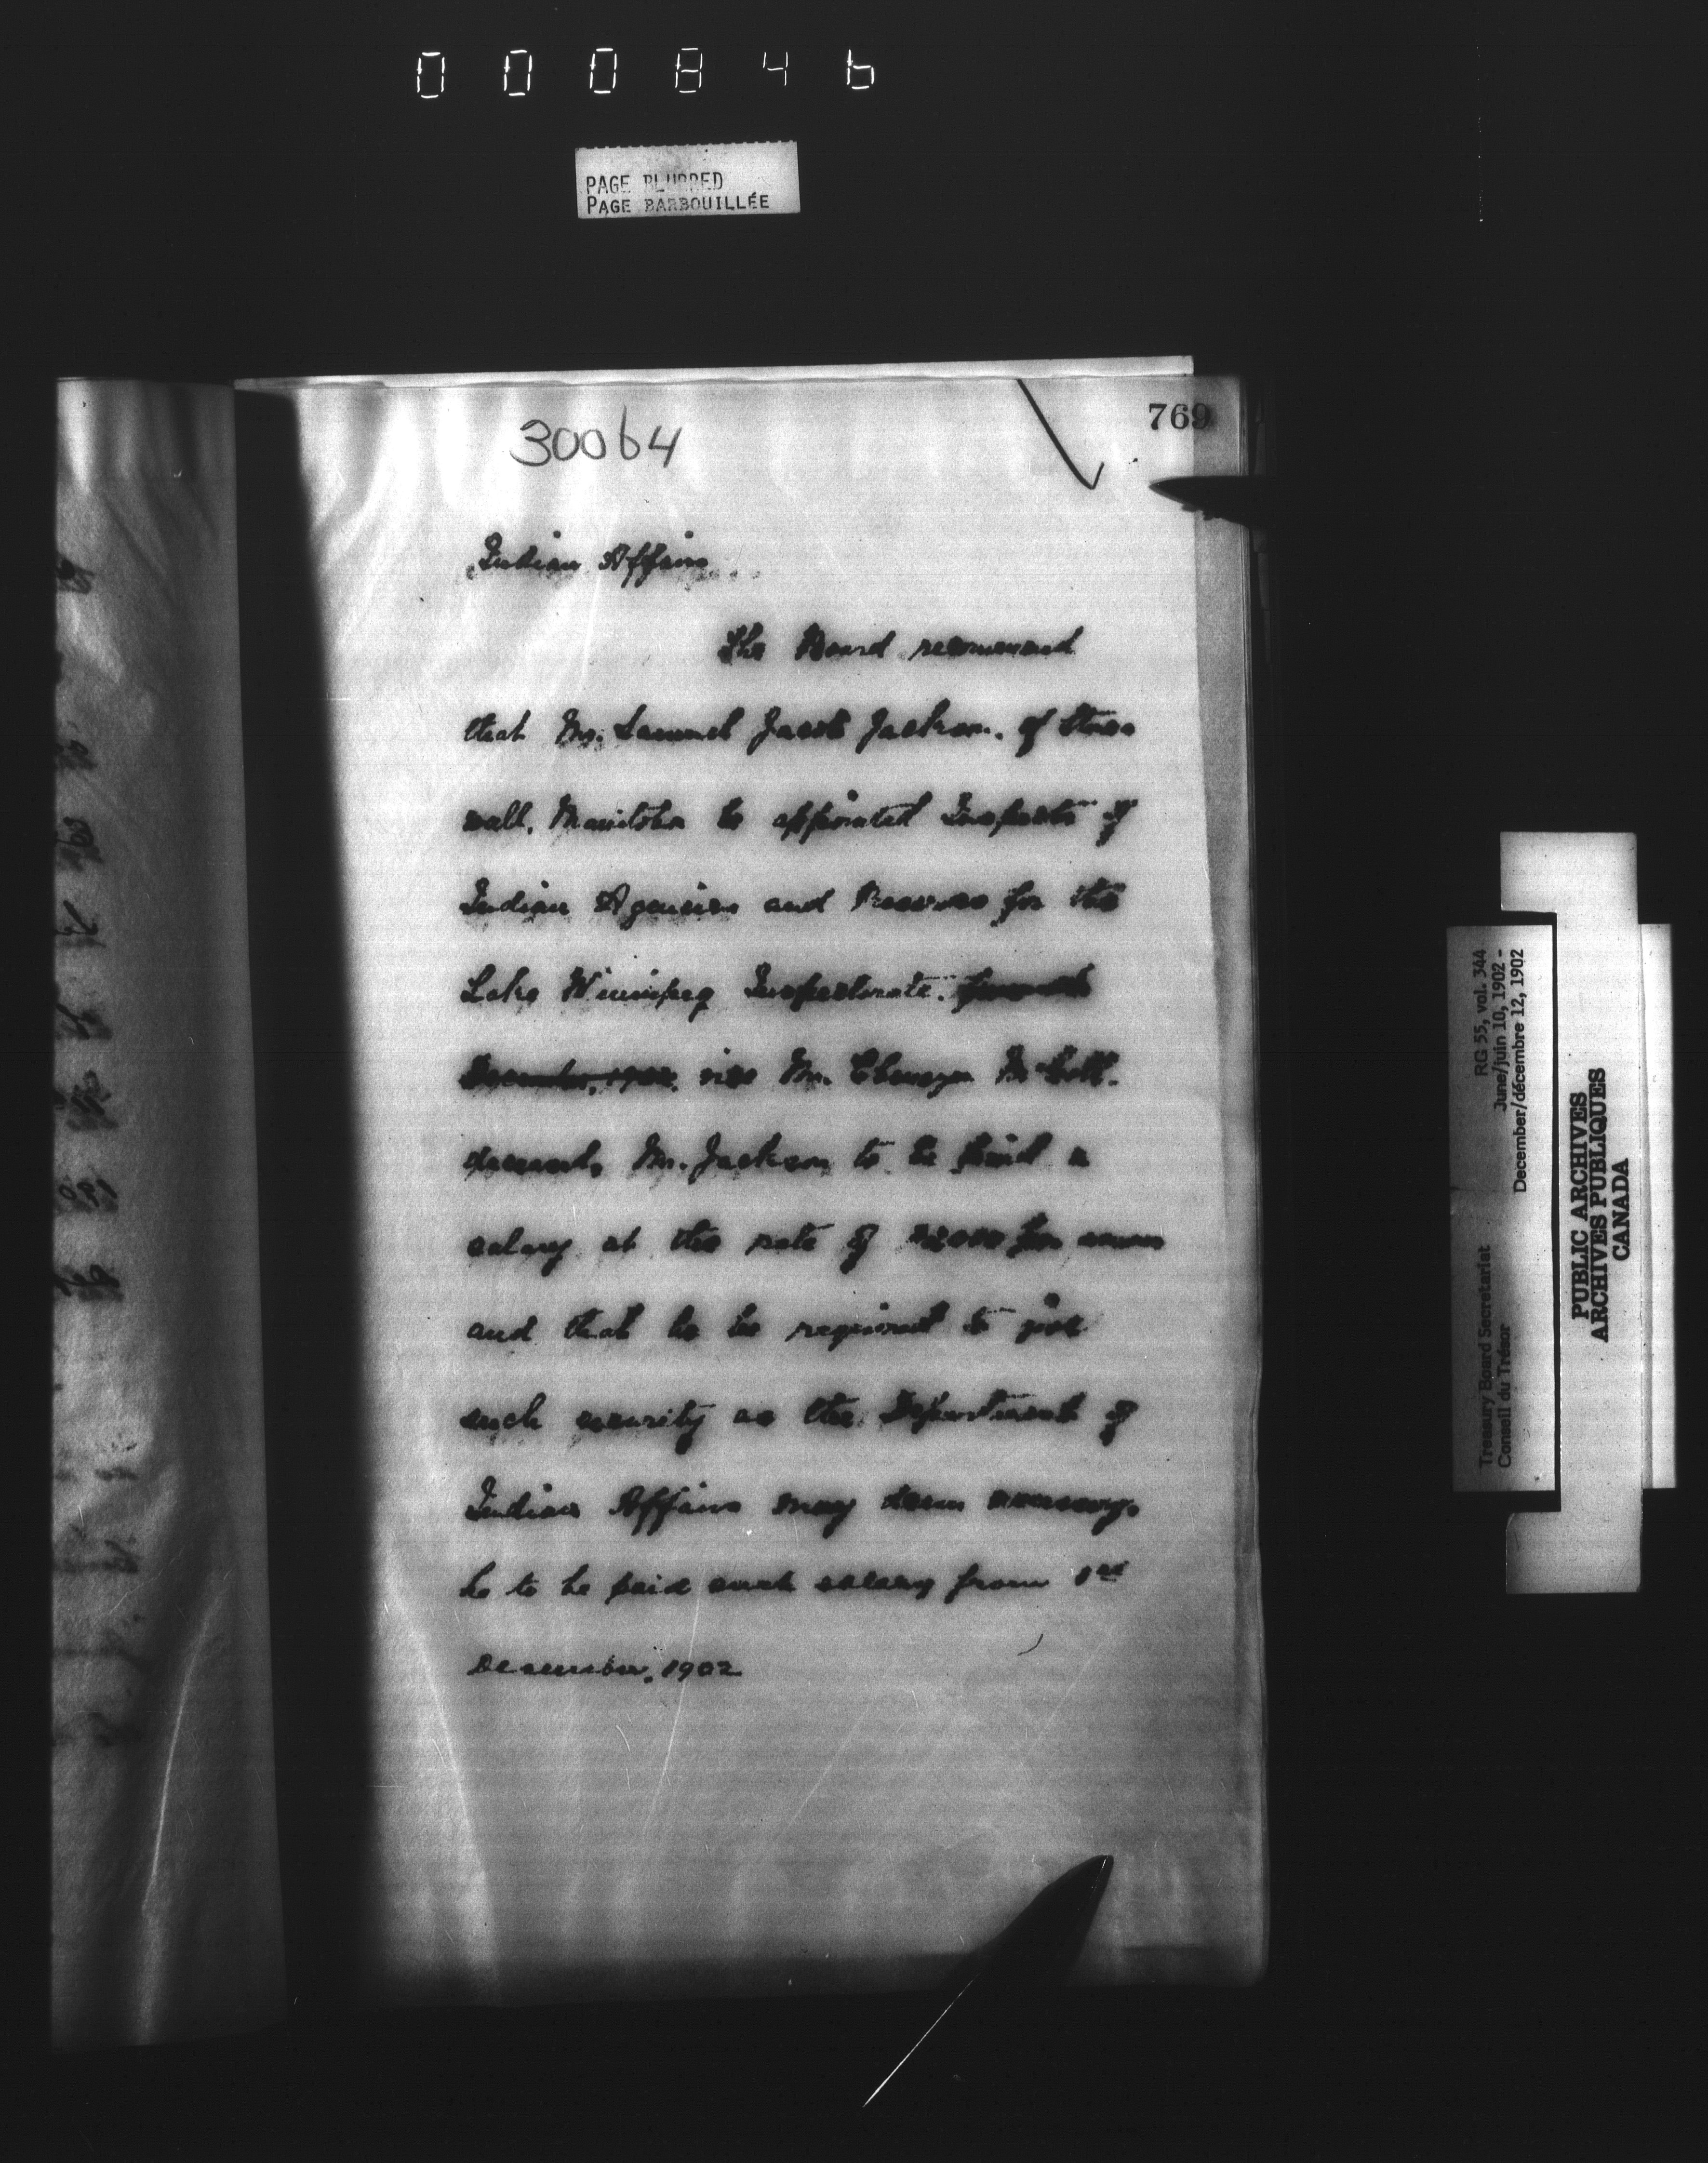 000846
PAGE BLURRED
PAGE BARBOUILLÉE
769
30064
Indian Affairs.
The Board recommend
that Mr. Samuel Jacob Jackson, of Stone-
wall, Manitoba be appointed Inspector of
Indian Agencies and Reserves for the
Lake Winnipeg Inspectorate.
December, 1902, vice Mr. Ebenezer McColl,
deceased, Mr. Jackson to be paid a
salary at the rate of $2000 per annum
and that he be required to give
such security as the Department of
Indian Affairs may deem necessary,
he to be paid such salary from 1st
December, 1902
RG 55, vol. 344
June/juin 10, 1902 -
December/décembre 12, 1902
Treasury Board Secretariat
Conseil du Trésor
PUBLIC ARCHIVES
ARCHIVES PUBLIQUES
CANADA